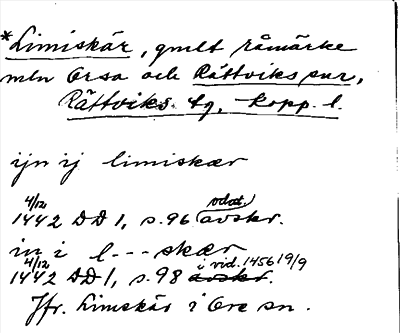 *Limiskär, gmlt råmärke
mln Orsa och Rättviks snr,
Rättviks tg, Kopp. l.
ijn ij limiskær
4/12 odat.
1442 DD 1, s. 96 avskr.
in i l---skær
4/12 i vid. 1456 19/9
1442 DD 1, s. 98 avskr.
Jfr. Limskär i Ore sn.